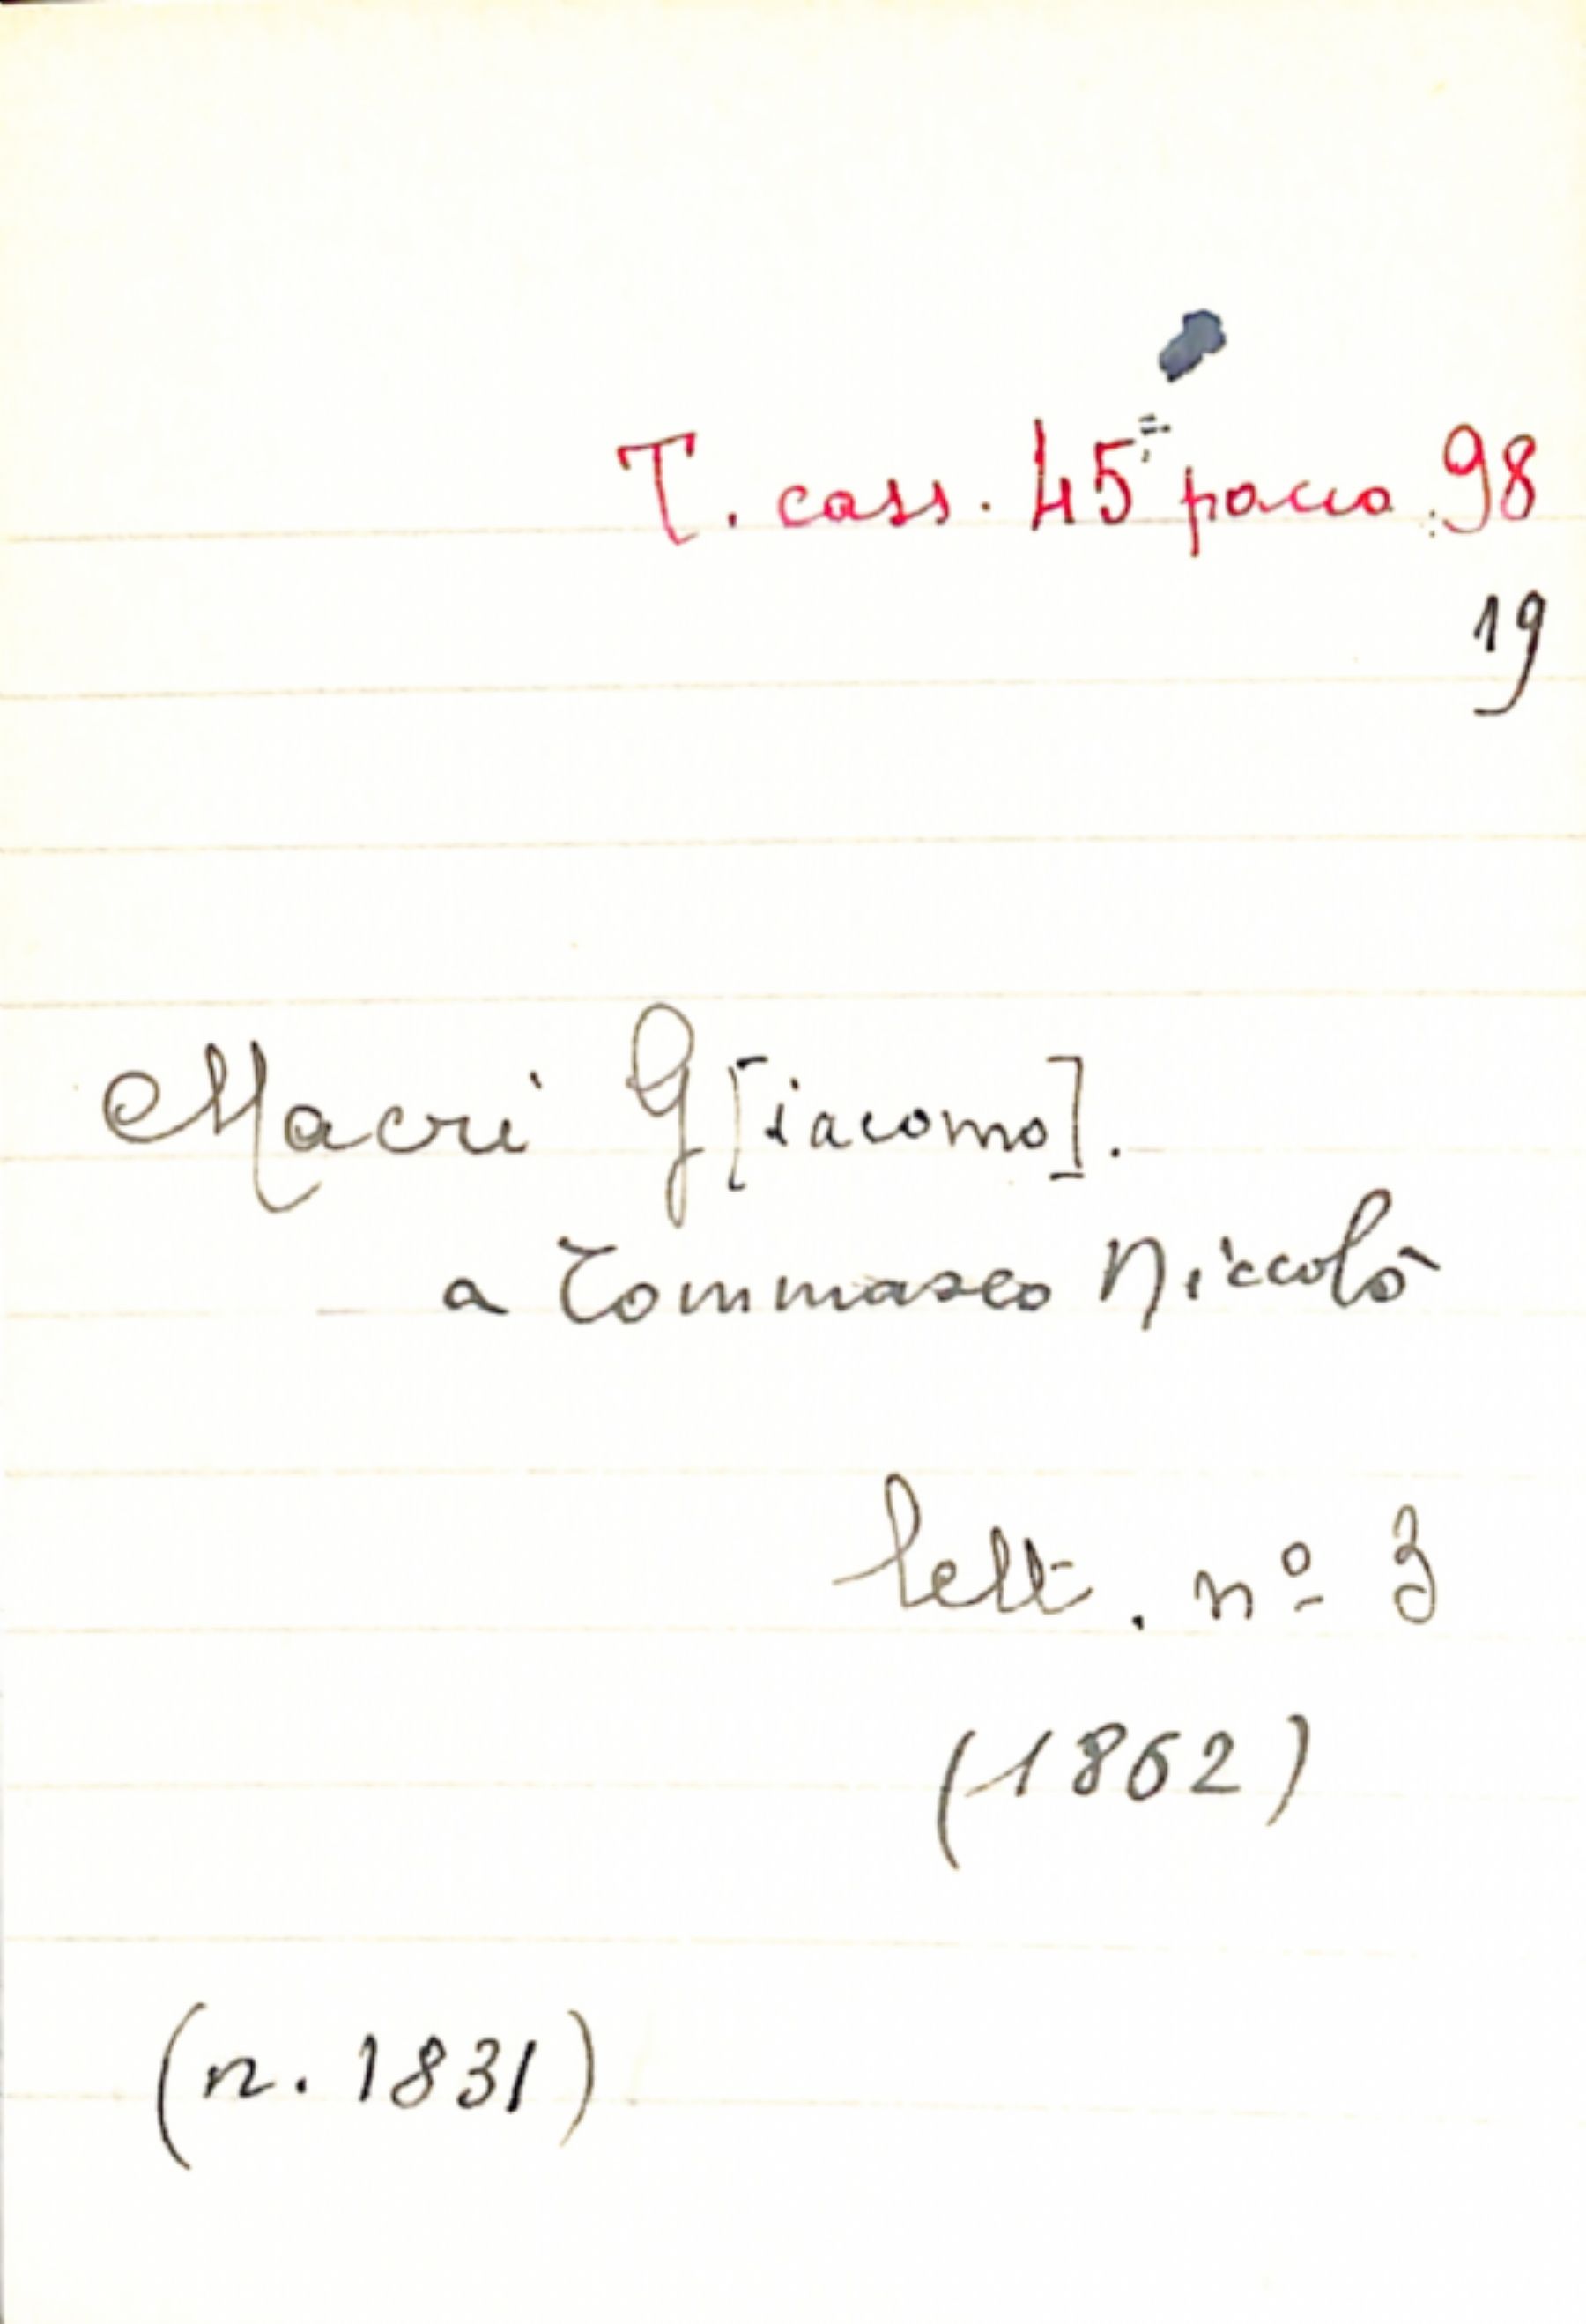 T. cass. 45 pacco 98
19
Macrì G[iacomo].
a Tommaseo Niccolò
lett. nº 3
(1862)
(n. 1831)